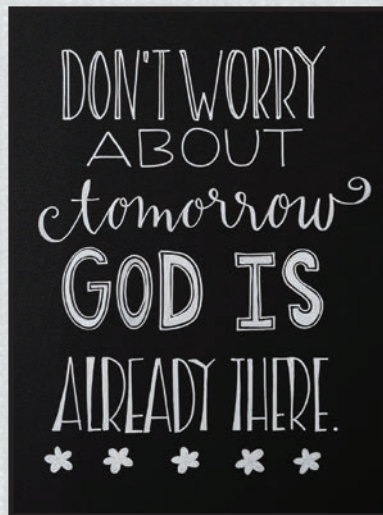 DON'T WORRY
ABOUT
tomorrow
GOD IS
ALREADY THERE.